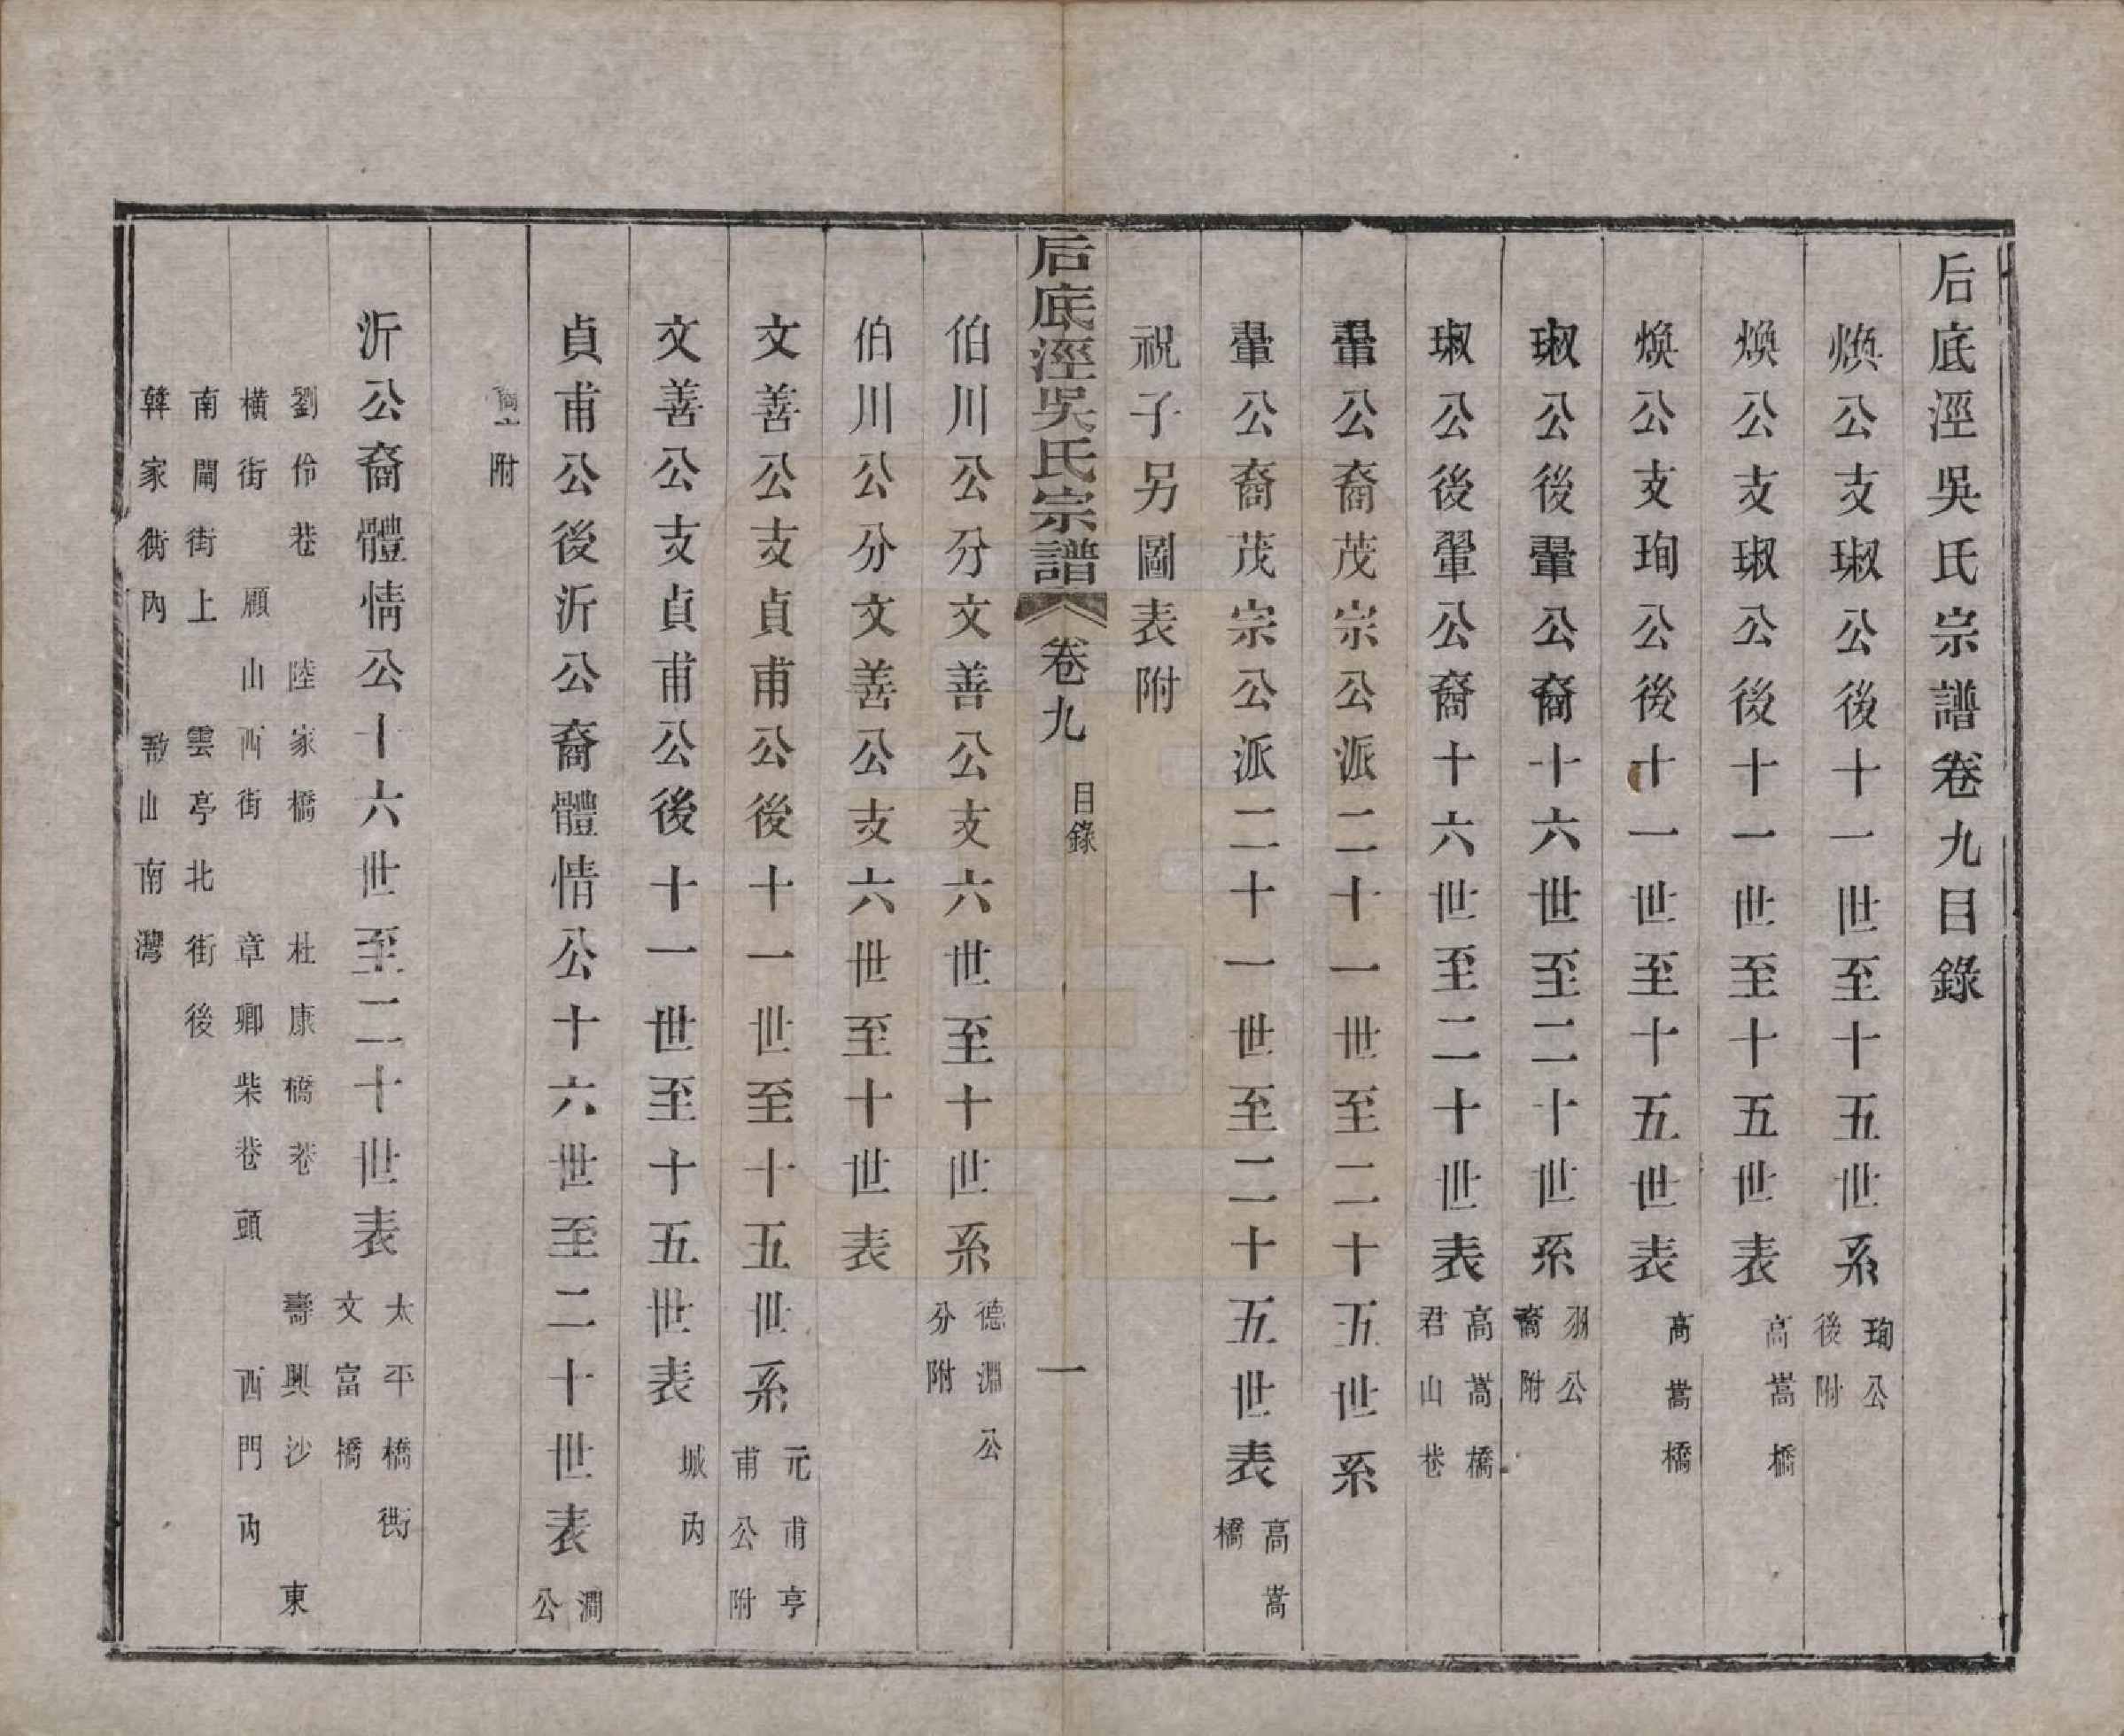 后底涇吳氏宗譜卷九目錄
煥公支琡公後十一世至十五世系 珣公後附
煥公支琡公後十一世至十五世表 高嵩橋
煥公支珣公後十一世至十五世表 高嵩橋
琡公後翬公裔十六世至二十世系 翊公裔附
琡公後翬公裔十六世至二十世表 高嵩橋君山巷
翬公裔茂宗公派二十一世至二十五世系
翬公裔茂宗公派二十一世至二十五世表 高嵩橋
祝子另圖表附
后底涇吳氏宗譜 卷九 目錄 一
伯川公分文善公支六世至十世系 德淵公分附
伯川公分文善公支六世至十世表
文善公支貞甫公後十一世至十五世系 元甫亨甫公附
文善公支貞甫公後十一世至十五世表 城內
貞甫公後沂公裔體情公十六世至二十世表 澗公
附
沂公裔體情公十六世至二十世表 太平橋衖 文富橋
劉伶巷 陸家橋 杜康橋巷 壽興沙 東
橫街 顧山西街 章卿柴巷頭 西門內
南閘街上 雲亭北街後
韓家衖內 敔山南灣